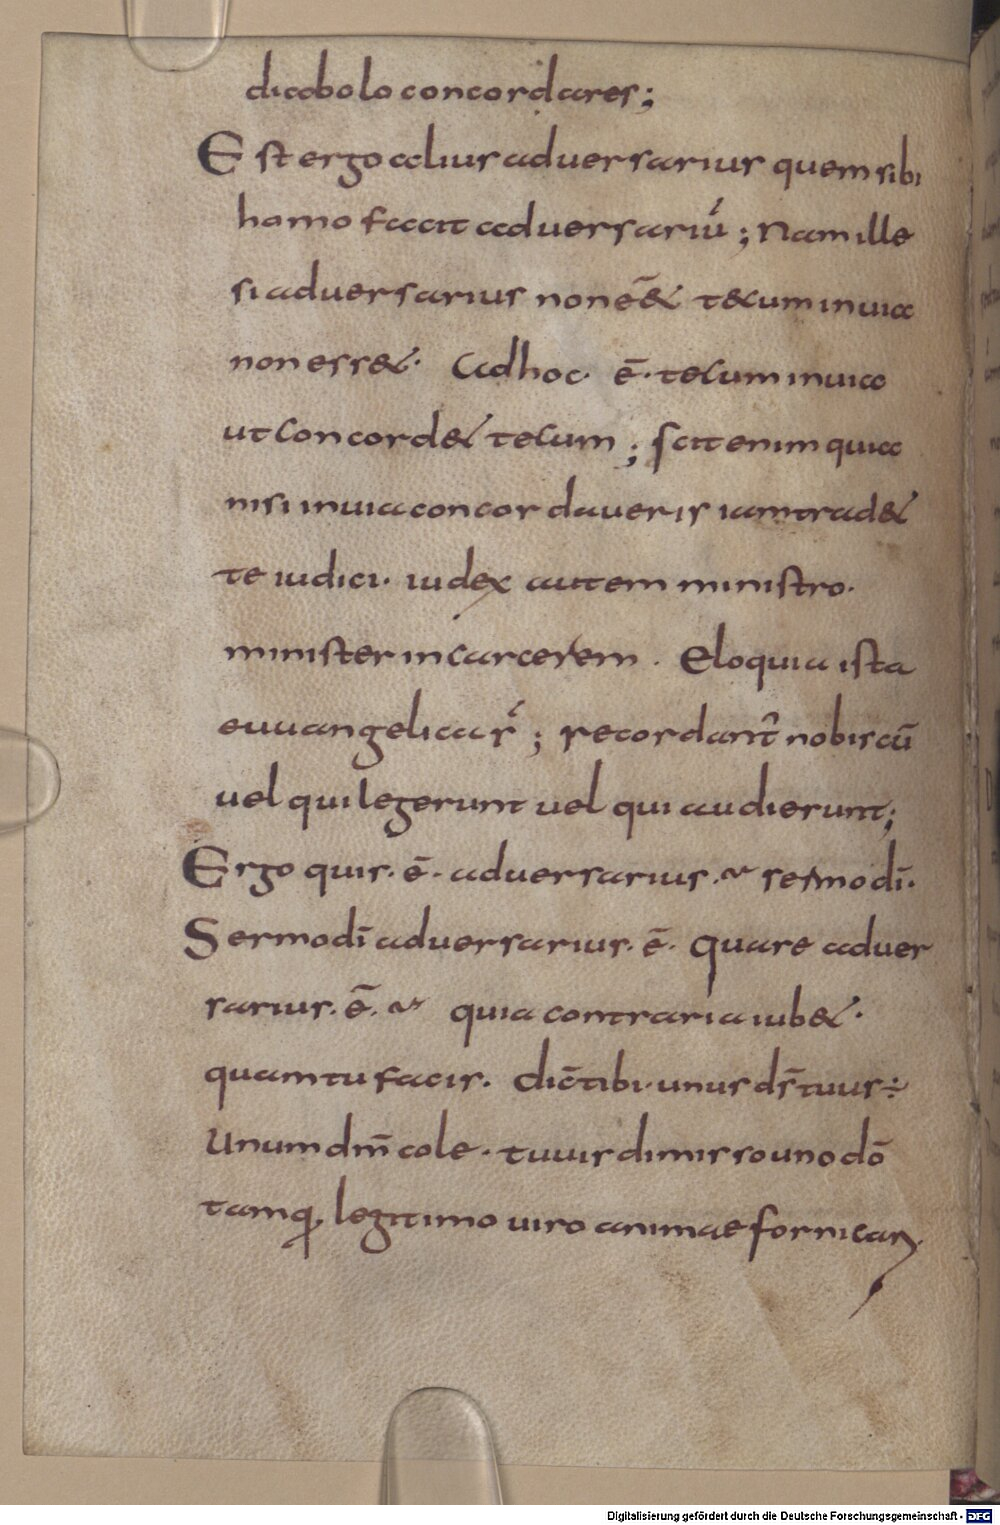 diabolo concordares;
Est ergo alius aduersarius quem sibi
homo facit aduersariū; Nam ille
si aduersarius non eēt tecum in uia
non esset. Ad hoc. ē. tecum in uia
ut concordet tecum; scit enim quia
nisi in uia concordaueris iam tradet
te iudici. iudex autem ministro.
minister in carcerem. Eloquia ista
euuangelica s̄; recordant̄ nobiscū
uel qui legerunt uel qui audierunt;
Ergo quis. ē. aduersarius.~ sermo dī.
Sermo dī aduersarius. ē. Quare aduer
sarius. ē.~ quia contraria iubet.
quam tu facis. dic̄ tibi. unus ds̄ tuus÷
Unum dm̄ cole. tu uis dimisso uno dō
tamq̄. legitimo uiro animae fornicari.
Digitalisierung gefördert durch die Deutsche Forschungsgemeinschaft - DFG